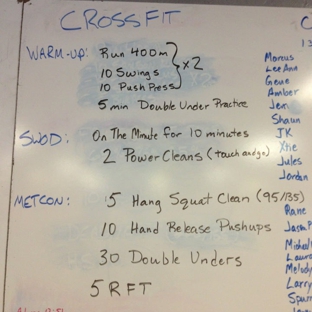 CROSSFIT
WARM-UP: Run 400m
10 Swings
10 Push Press
} x 2
5 min Double Under Practice
SWOD: On The Minute for 10 minutes
2 Power Cleans (touch and go)
METCON: 5 Hang Squat Clean (95/135)
10 Hand Release Pushups
30 Double Unders
5 RFT
C
13
Marcus
LeeAnn
Gene
Amber
Jen
Shaun
JK
Xtie
Jules
Jordan
Raine
Jasm P
Laura
Melody
Larry